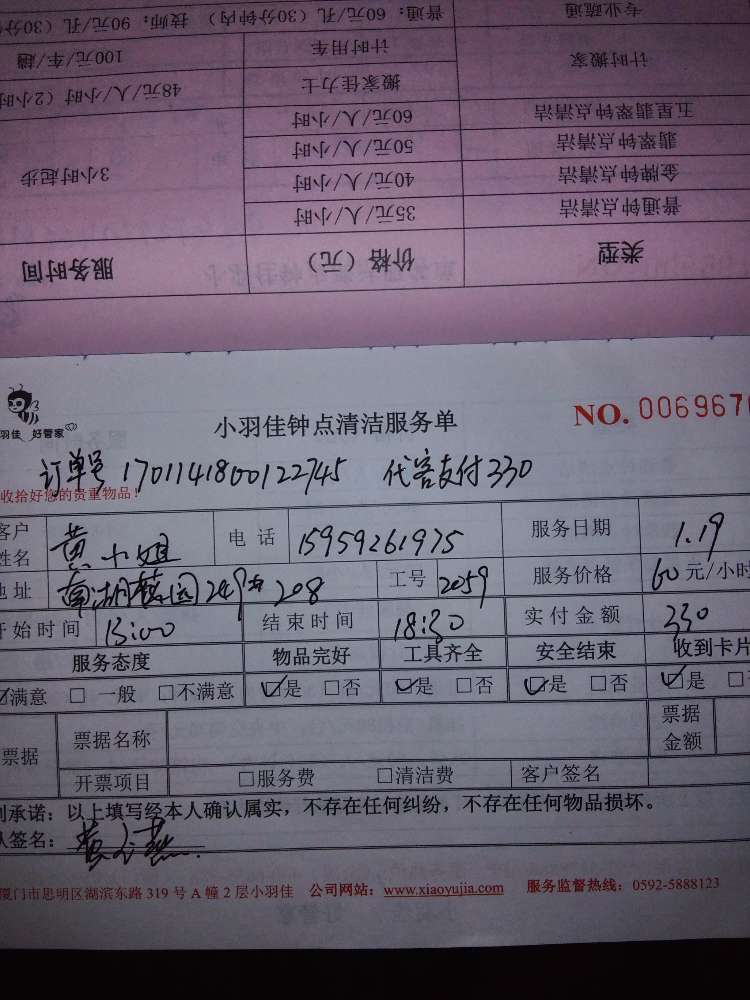 专业疏通 普通：60元/孔（30分钟内） 技师：90元/孔（30分
计时搬家 计时用车 100元/车/趟
搬家佳力士 48元/人/小时（2小时
五星翡翠钟点清洁 60元/人/小时
翡翠钟点清洁 50元/人/小时
金牌钟点清洁 40元/人/小时 3小时起步
普通钟点清洁 35元/人/小时
类型 价格（元） 服务时间
羽佳 好管家
小羽佳钟点清洁服务单 NO. 0069670
订单号 1701141800122745 代客支付330
收拾好您的贵重物品！
客户姓名 黄小姐 电话 15959261975 服务日期 1.19
地址 249# 208 工号 2059 服务价格 60元/小时
开始时间 13:00 结束时间 18:30 实付金额 330
服务态度 物品完好 工具齐全 安全结束 收到卡片
☑满意 □一般 □不满意 ☑是 □否 ☑是 □否 ☑是 □否 ☑是 □
票据 票据名称 票据金额
开票项目 □服务费 □清洁费 客户签名
承诺：以上填写经本人确认属实，不存在任何纠纷，不存在任何物品损坏。
人签名：
厦门市思明区湖滨东路319号A幢2层小羽佳 公司网站：www.xiaoyujia.com 服务监督热线：0592-5888123